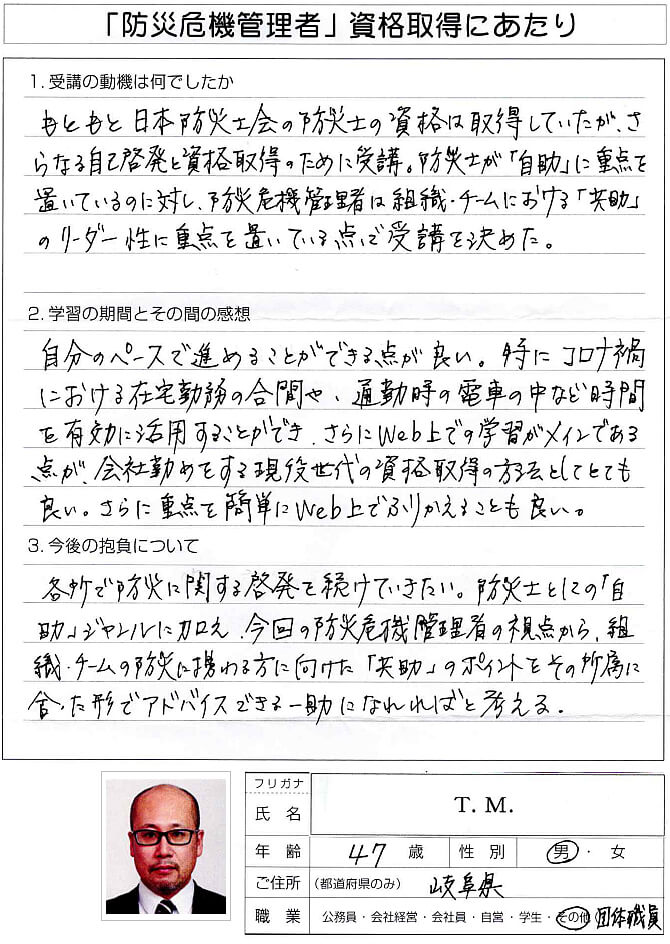 「防災危機管理者」資格取得にあたり
1. 受講の動機は何でしたか
もともと日本防災士会の防災士の資格は取得していたが、さ
らなる自己啓発と資格取得のために受講。防災士が「自助」に重点を
置いているのに対し、防災危機管理者は組織・チームにおける「共助」
のリーダー性に重点を置いている点で受講を決めた。
2. 学習の期間とその間の感想
自分のペースで進めることができる点が良い。特にコロナ禍
における在宅勤務の合間や、通勤時の電車の中など時間
を有効に活用することができ、さらにWeb上での学習がメインである
点が、会社勤めをする現役世代の資格取得の方法としてとても
良い。さらに重点を簡単にWeb上でふりかえることも良い。
3. 今後の抱負について
各所で防災に関する啓発を続けていきたい。防災士としての「自
助」ジャンルに加え、今回の防災危機管理者の視点から、組
織・チームの防災に携わる方に向けた「共助」のポイントをその所属に
合った形でアドバイスできる一助になれればと考える。
フリガナ
氏名 T. M.
年齢 47 歳 性別 男・女
ご住所 (都道府県のみ) 岐阜県
職業 公務員・会社経営・会社員・自営・学生・その他( 団体職員